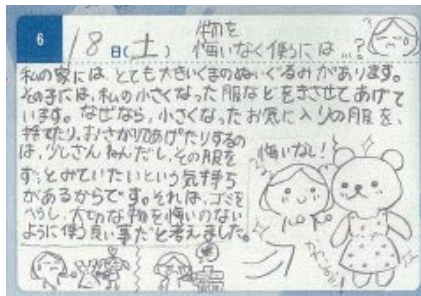 6
18日(土)
物を
悔いなく使うには…?
私の家には、とても大きいくまのぬいぐるみがあります。
その子には、私の小さくなった服などをきさせてあげて
います。なぜなら、小さくなったお気に入りの服を、
捨てたり、おさがりであげたりするの
は、少しざんねんだし、その服を
ずっとみていたいという気持ち
があるからです。それは、ゴミを
へらし、大切な物を悔いのない
ように使う良い事だと考えました。
悔いなし!